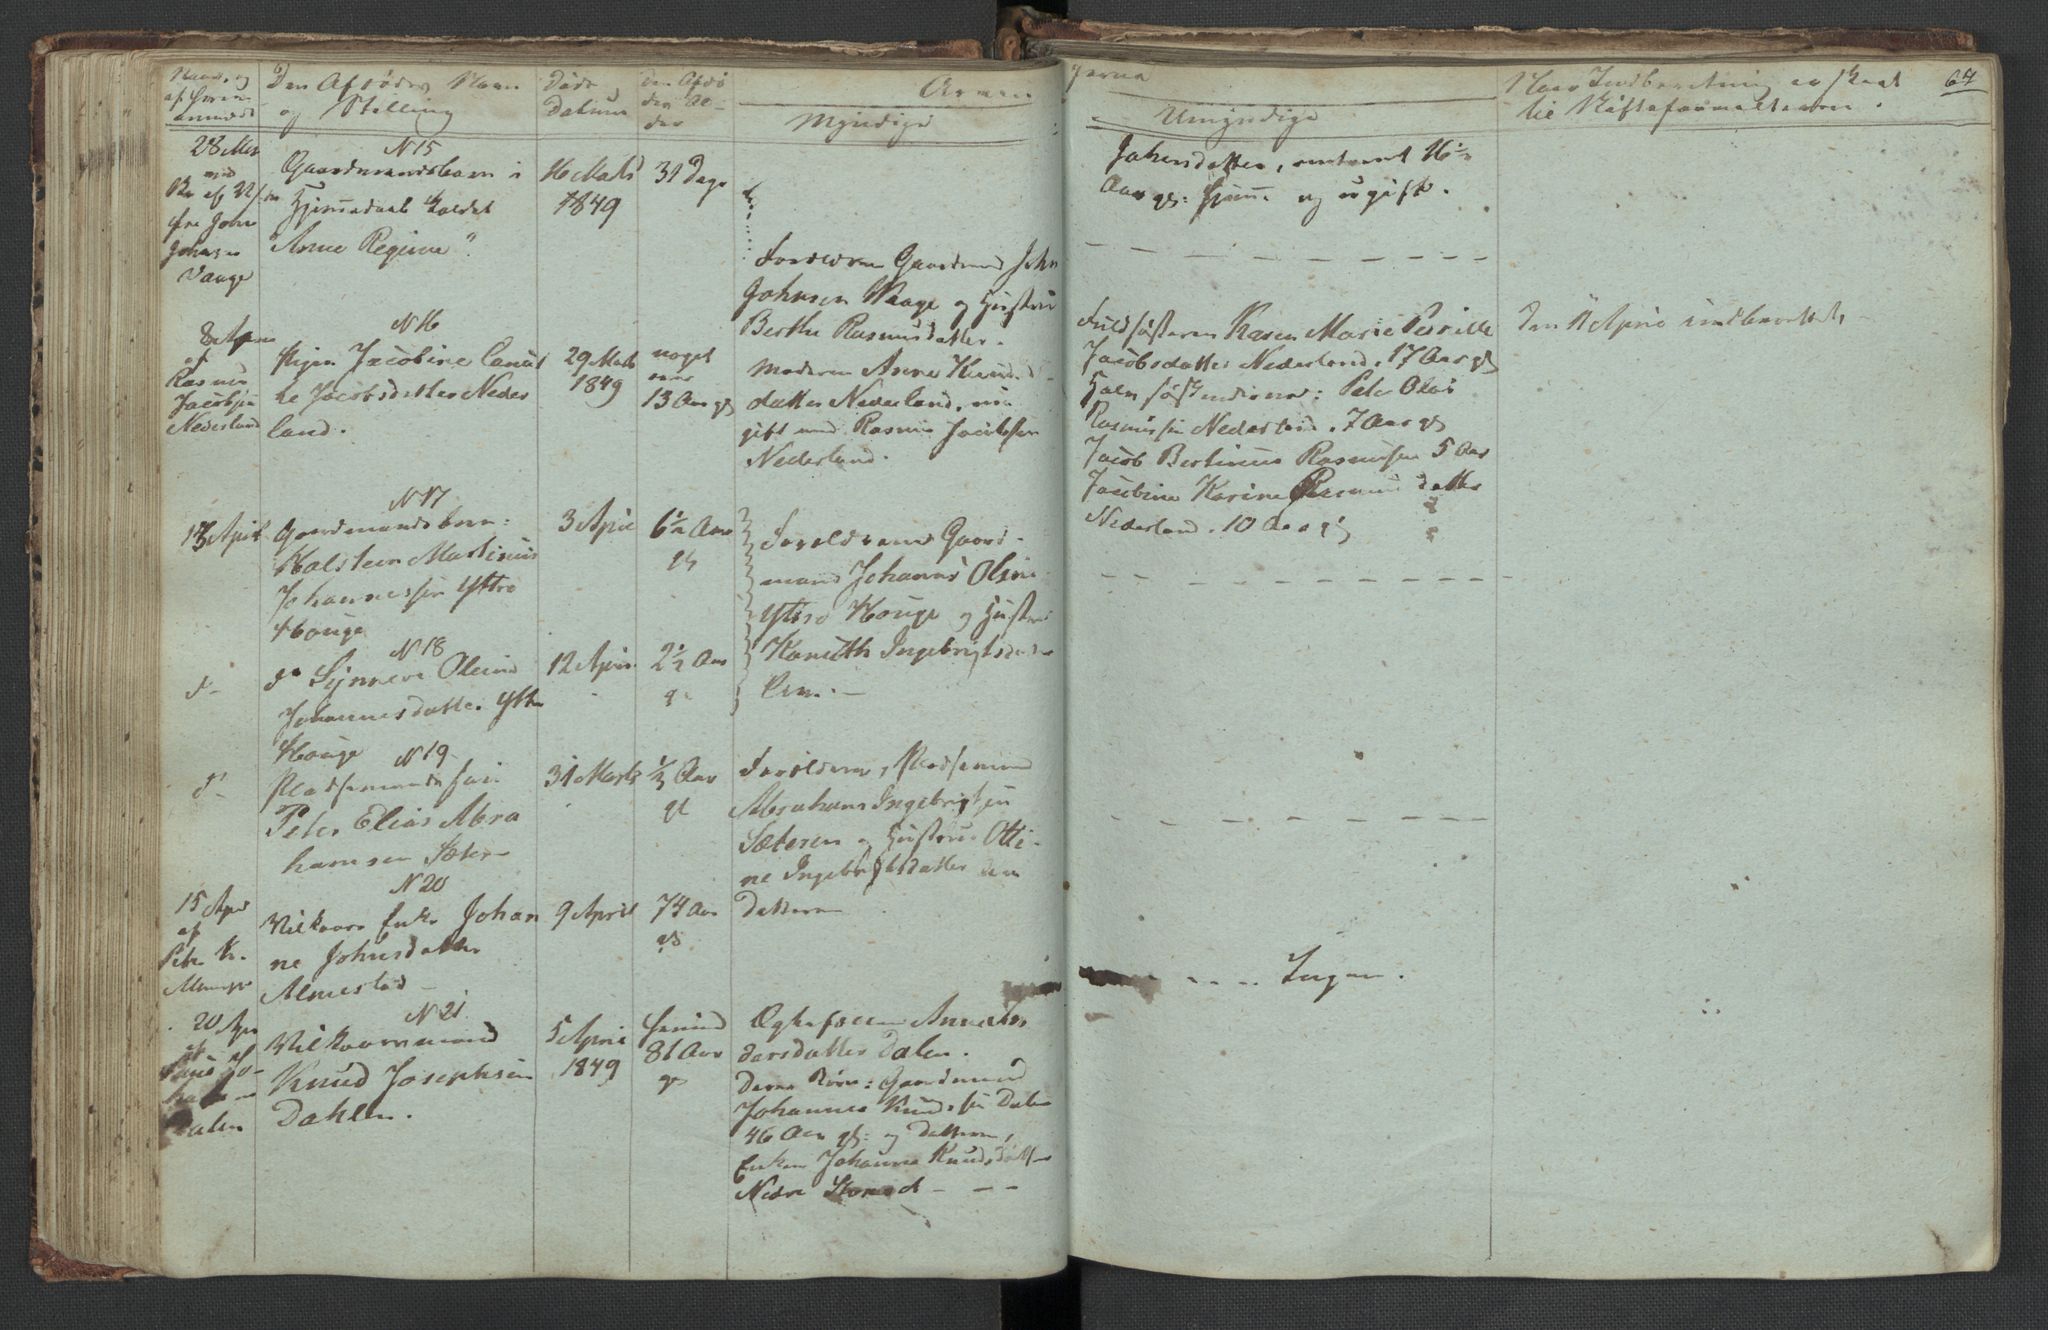 Den Afdødes Navn
og Stilling
Døds
Datum
Den Afdø
des Al-
der
Arvin
Myndige
gerne
Umyndige
Naar Indberetning er skeet
til Skifteforvalteren.
64
28 Mar
fra John
Johnsen
Vaage
N 15
Gaardmandsbarn i
Hjemmedaab kaldet
"Anne Regine".
16 Marts
1849
31 Dage
Forældrene Gaardmand John
Johnsen Vaage og Hustru
Berthe Rasmusdatter.
Johnsdatter, omtrent 16½
Aar gl: hjemme og ugift.
8 April
af
Rasmus
Jacobsen
Nederland
N 16
Pigen Jacobine Canut
te Jacobsdatter Neder
land.
29 Marts
1849
noget
over
13 Aar gl
Moderen Anne Knuds
datter Nederland, nu
gift med Rasmus Jacobsen
Nederland.
Fuldsøsteren Karen Marie Pernille
Jacobsdatter Nederland. 17 Aar gl
Halvsøskenderne: Peter Olai
Rasmussen Nederland. 7 Aar gl
Jacob Bertinus Rasmussen 5 Aar
Jacobine Karine Rasmusdatter
Nederland. 10 Aar gl
Den 11 April indberettet,
13 April
N 17
Gaardmandsbarn:
Halsteen Martinus
Johannessen Yttre
Houge
3 April
6½ Aar
gl
Forældrene Gaard-
mand Johannes Olsen
Yttre Houge og Hustru
Kanuth Ingebrigtsdatter
d-
N 18
do Synneve Oline
Johannesdatter Yttre
Houge
12 April
2½ Aar
gl
d-
N 19
Pladsemandssøn
Peter Elias Abra
hamsen Sæter-
31 Marts
½ Aar
gl
Forældrene, Pladsemand
Abraham Ingebrigtsen
Sæteren og Hustrue Otti-
ne Ingebrigtsdatter
15 April
af
Peter K.
N 20
Vilkaars Enke Johan
ne Johnsdatter
Almestad-
9 April
74 Aar
gl
Datteren
Ingen.
20 Apr
af
Dalen
N 21
Vilkaarsmand
Knud Josephsen
Dahlen.
5 April
1849
81 Aar
gl
Ægtefællen Anne An
dersdatter Dalen.
Deres Børn: Gaardmand
Johannes Knudsen Dalen
46 Aar gl: og Datteren,
Enken Johanne Knudsdatter
Nedre